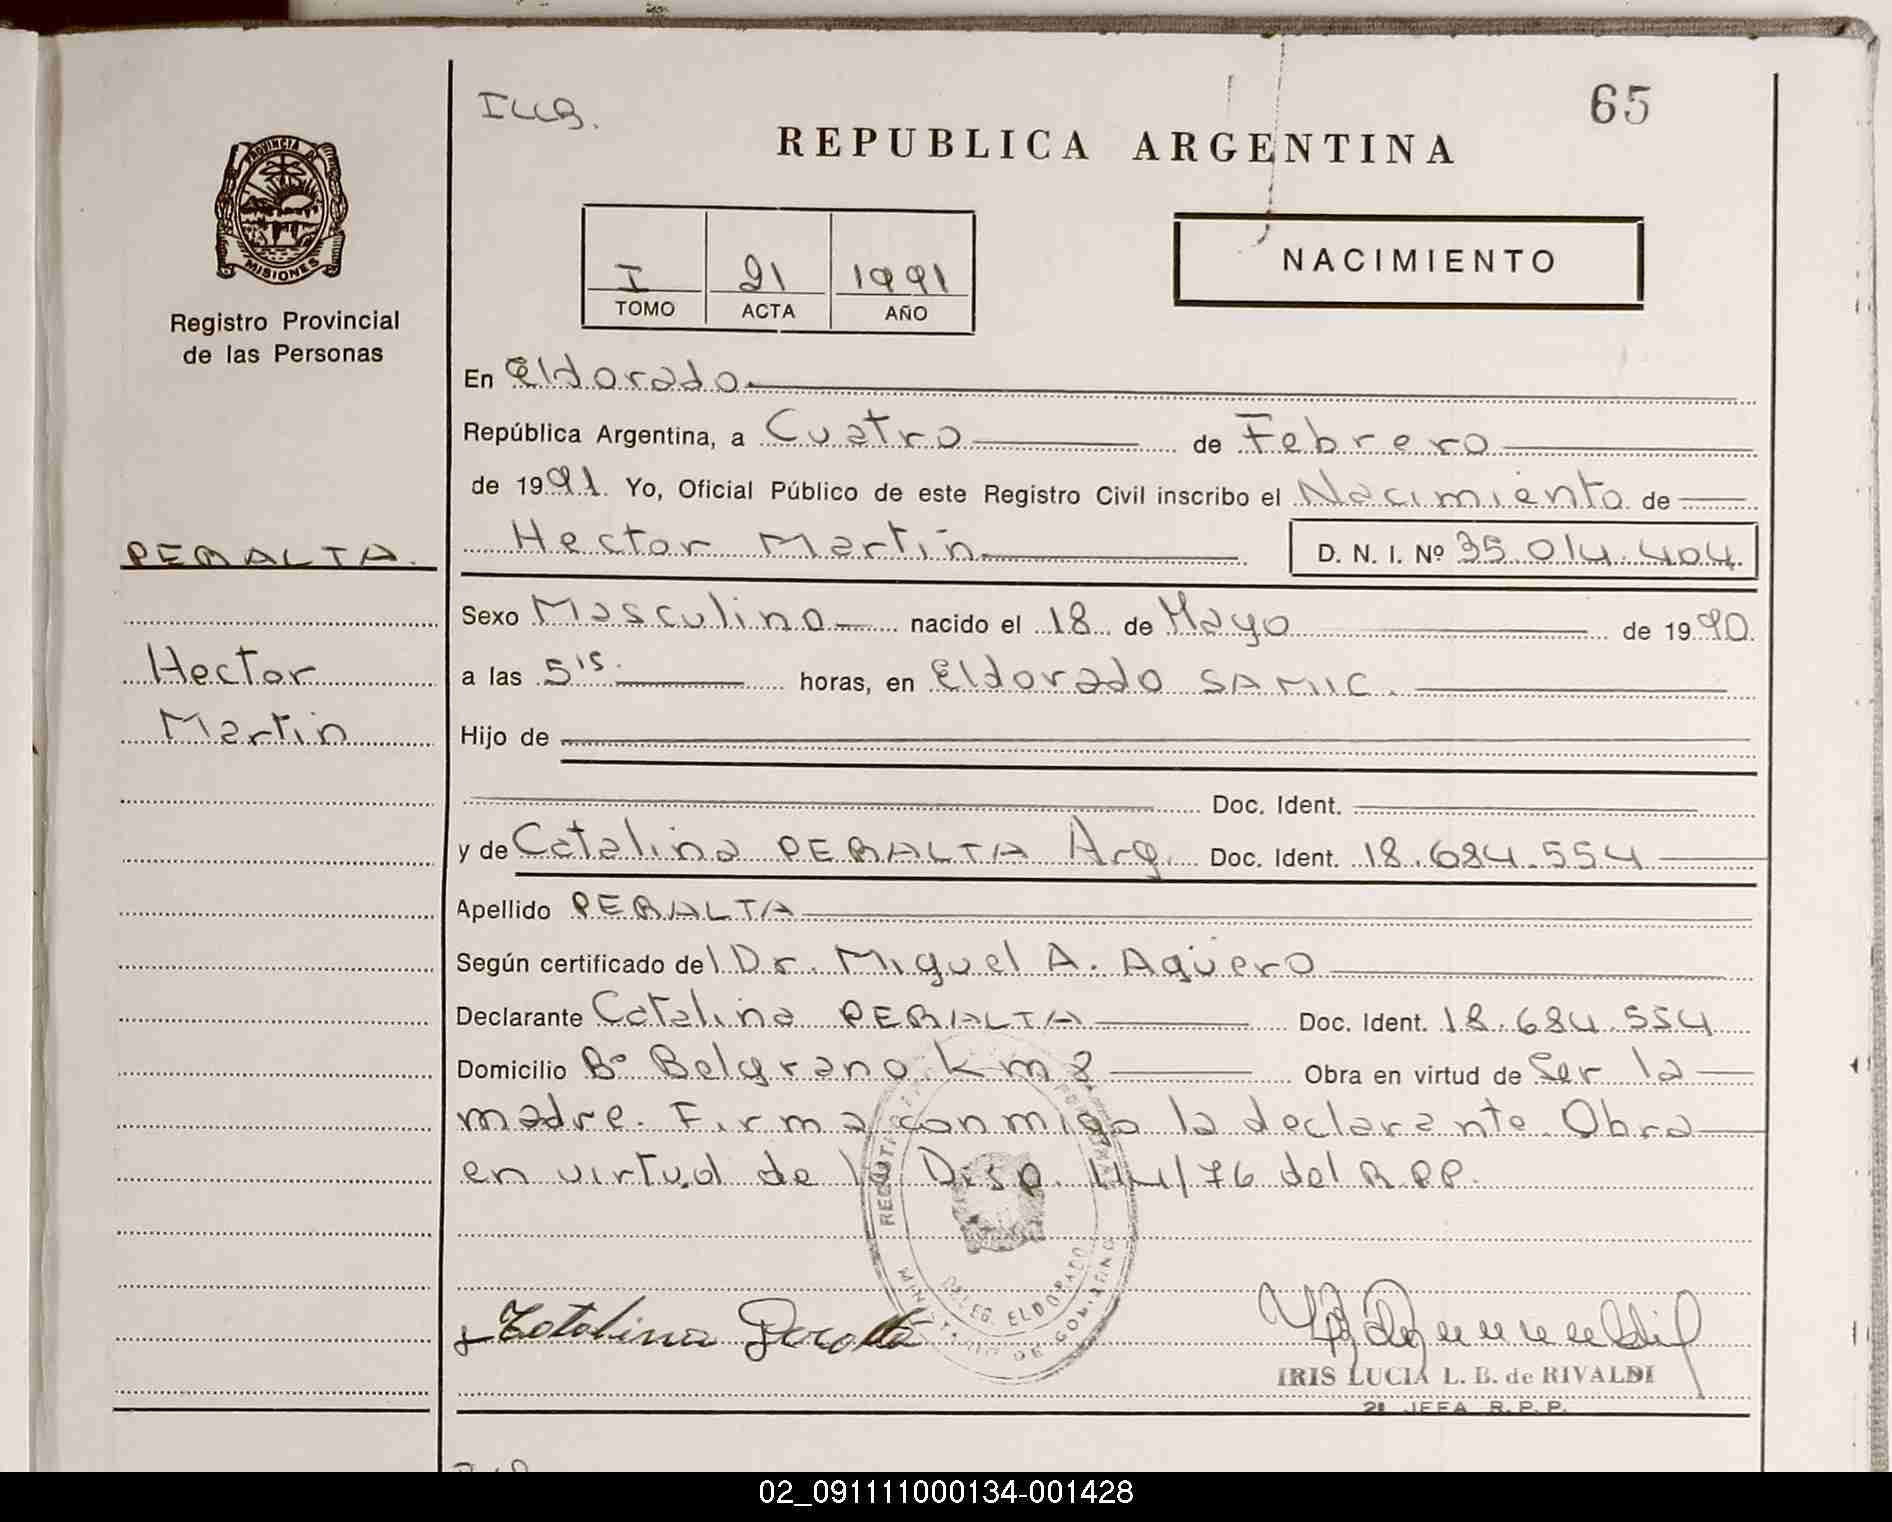 65
REPUBLICA ARGENTINA
PROVINCIA D
MISIONES
Registro Provincial
de las Personas
I 91 1991
TOMO ACTA AÑO
NACIMIENTO
En Eldorado
República Argentina, a Cuatro de Febrero
de 1991 Yo, Oficial Público de este Registro Civil inscribo el Nacimiento de
Hector Martin D. N. I. Nº 35.014.404
PERALTA.
Sexo Masculino nacido el 18 de Mayo de 1990
Hector
a las 5'15. horas, en Eldorado SAMIC.
Martin
Hijo de
Doc. Ident.
y de Catalina PERALTA Arg. Doc. Ident. 18.684.554
Apellido PERALTA
Según certificado del Dr. Miguel A. Agüero
Declarante Catalina PERALTA Doc. Ident. 18.684.554
Domicilio Bº Belgrano km 8 Obra en virtud de Ser la
madre. Firma conmigo la declarante. Obra
en virtud de la Disp. 44/76 del R.P.P.
DELEG. ELDORADO
DE GOBIERNO
Catalina Peralta
IRIS LUCIA L. B. de RIVALDI
2ª JEFA R. P. P.
02_091111000134-001428